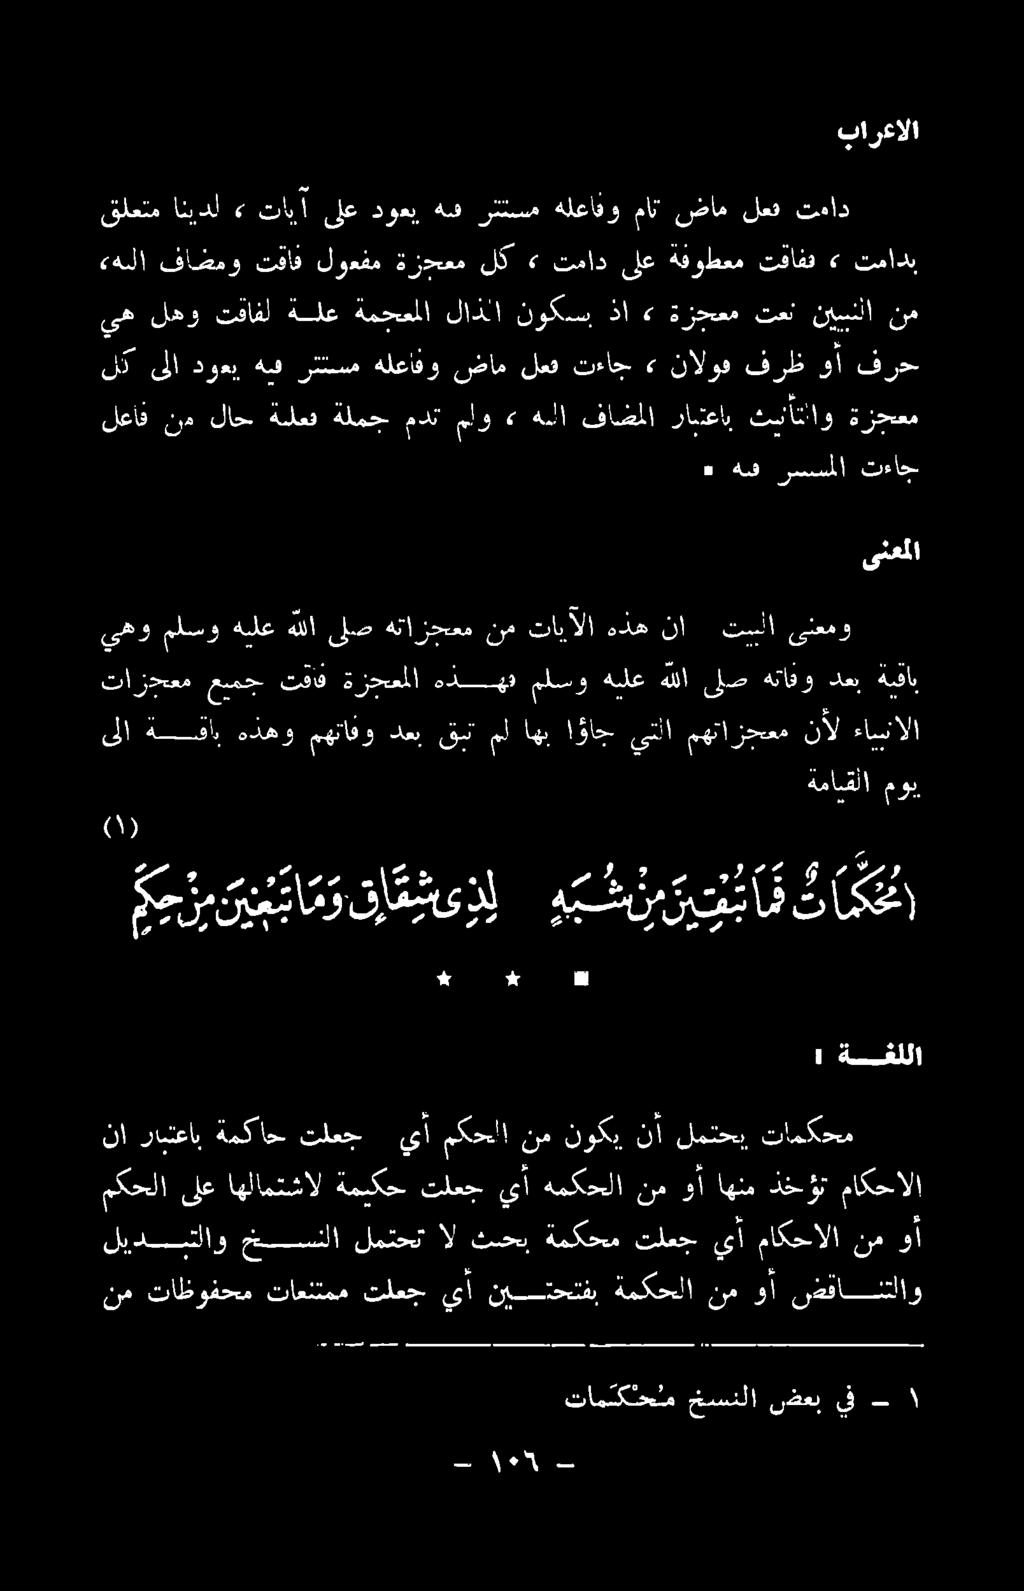 الاعراب
دامت فعل ماض تام وفاعله مستتر فيه يعود على آيات ، لدينا متعلق
بدامت ، ففاقت معطوفة على دامت ، كل معجزة مفعول فاقت ومضاف اليه،
من النبيين نعت معجزة ، اذ بسكون الذال المعجمة علة لفاقت وهل هي
حرف أو ظرف قولان ، جاءت فعل ماض وفاعله مستتر فيه يعود الى كل
معجزة والتأنيث باعتبار المضاف اليه ، ولم تدم جملة فعلية حال من فاعل
جاءت المستتر فيه ■
المعنى
ومعنى البيت ان هذه الآيات من معجزاته صلى الله عليه وسلم وهي
باقية بعد وفاته صلى الله عليه وسلم فهــذه المعجزة فاقت جميع معجزات
الانبياء لأن معجزاتهم التي جاؤا بها لم تبق بعد وفاتهم وهذه باقــة الى
يوم القيامة
(١)
(مُحَكَّمَاتٌ فَمَا تُبْقِينَ مِنْ شُبَهٍ لِذِى شِقَاقٍ وَمَا تَبْغِينَ مِنْ حِكَمِ
★ ★ ■
اللغــة ١
محكمات يحتمل أن يكون من الحكم أي جعلت حاكمة باعتبار ان
الاحكام تؤخذ منها أو من الحكمه أي جعلت حكيمة لاشتمالها على الحكم
أو من الاحكام أي جعلت محكمة بحيث لا تحتمل النســخ والتبــديل
والتنــاقض أو من الحكمة بفتحتــين أي جعلت ممتنعات محفوظات من
١ - في بعض النسخ مُحْكَمات
- ١٠٦ -